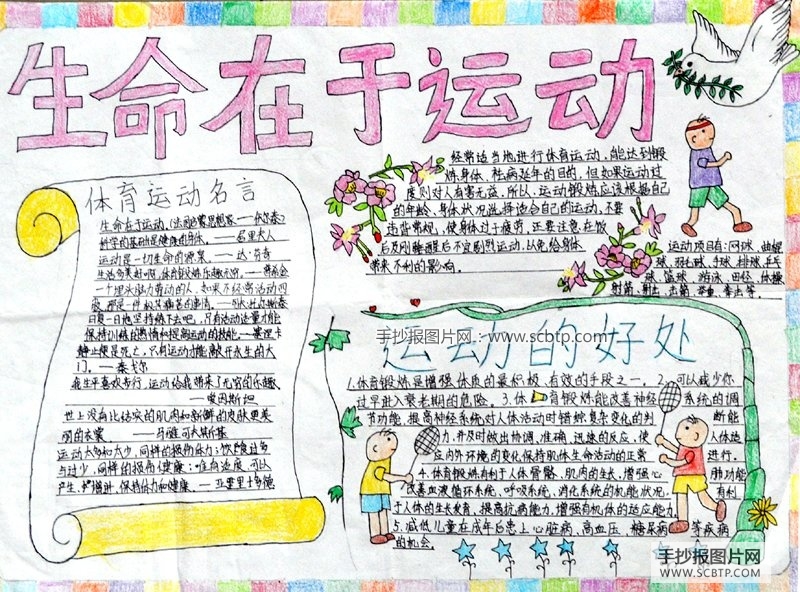 生命在于运动
体育运动名言
生命在于运动。(法国启蒙思想家——伏尔泰)
科学的基础是健康的身体。——居里夫人
运动是一切生命的源泉。——达·芬奇
静止便是死亡,只有运动才能敲开永生的大
门。——泰戈尔
我生平喜欢步行,运动给我带来了无穷的乐趣。
——爱因斯坦
世上没有比结实的肌肉和新鲜的皮肤更美
丽的衣裳。——马雅可夫斯基
运动太多和太少,同样的损伤体力;饮食过多
与过少,同样的损害健康;唯有适度可以
产生、增进、保持体力和健康。——亚里士多德
经常适当地进行体育运动,能达到锻
炼身体、祛病延年的目的,但如果运动过
度则对人有害无益,所以,运动锻炼应该根据自己
的年龄、身体状况选择适合自己的运动,不要
违背常规,使身体过于疲劳,还要注意在饭
后及刚睡醒后不宜剧烈运动,以免给身体
带来不利的影响。
运动项目有:网球、曲棍
球、羽毛球、手球、排球、乒乓
球、篮球、游泳、田径、体操
射箭、射击、击剑、举重、拳击等。
手抄报图片网:www.scbtp.com
运动的好处
1.体育锻炼是增强体质的最积极、有效的手段之一。2.可以减少你
过早进入衰老期的危险。3.体育锻炼能改善神经系统的调
节功能,提高神经系统对人体活动时错综复杂变化的判断能
力,并及时做出协调、准确、迅速的反应,使人体适
应内外环境的变化,保持肌体生命活动的正常进行。
4.体育锻炼有利于人体骨骼、肌肉的生长,增强心肺功能
改善血液循环系统、呼吸系统、消化系统的机能状况,有利
于人体的生长发育,提高抗病能力,增强有机体的适应能力。
5.减低儿童在成年后患上心脏病、高血压、糖尿病等疾病
的机会。
手抄报图片网
WWW.SCBTP.COM